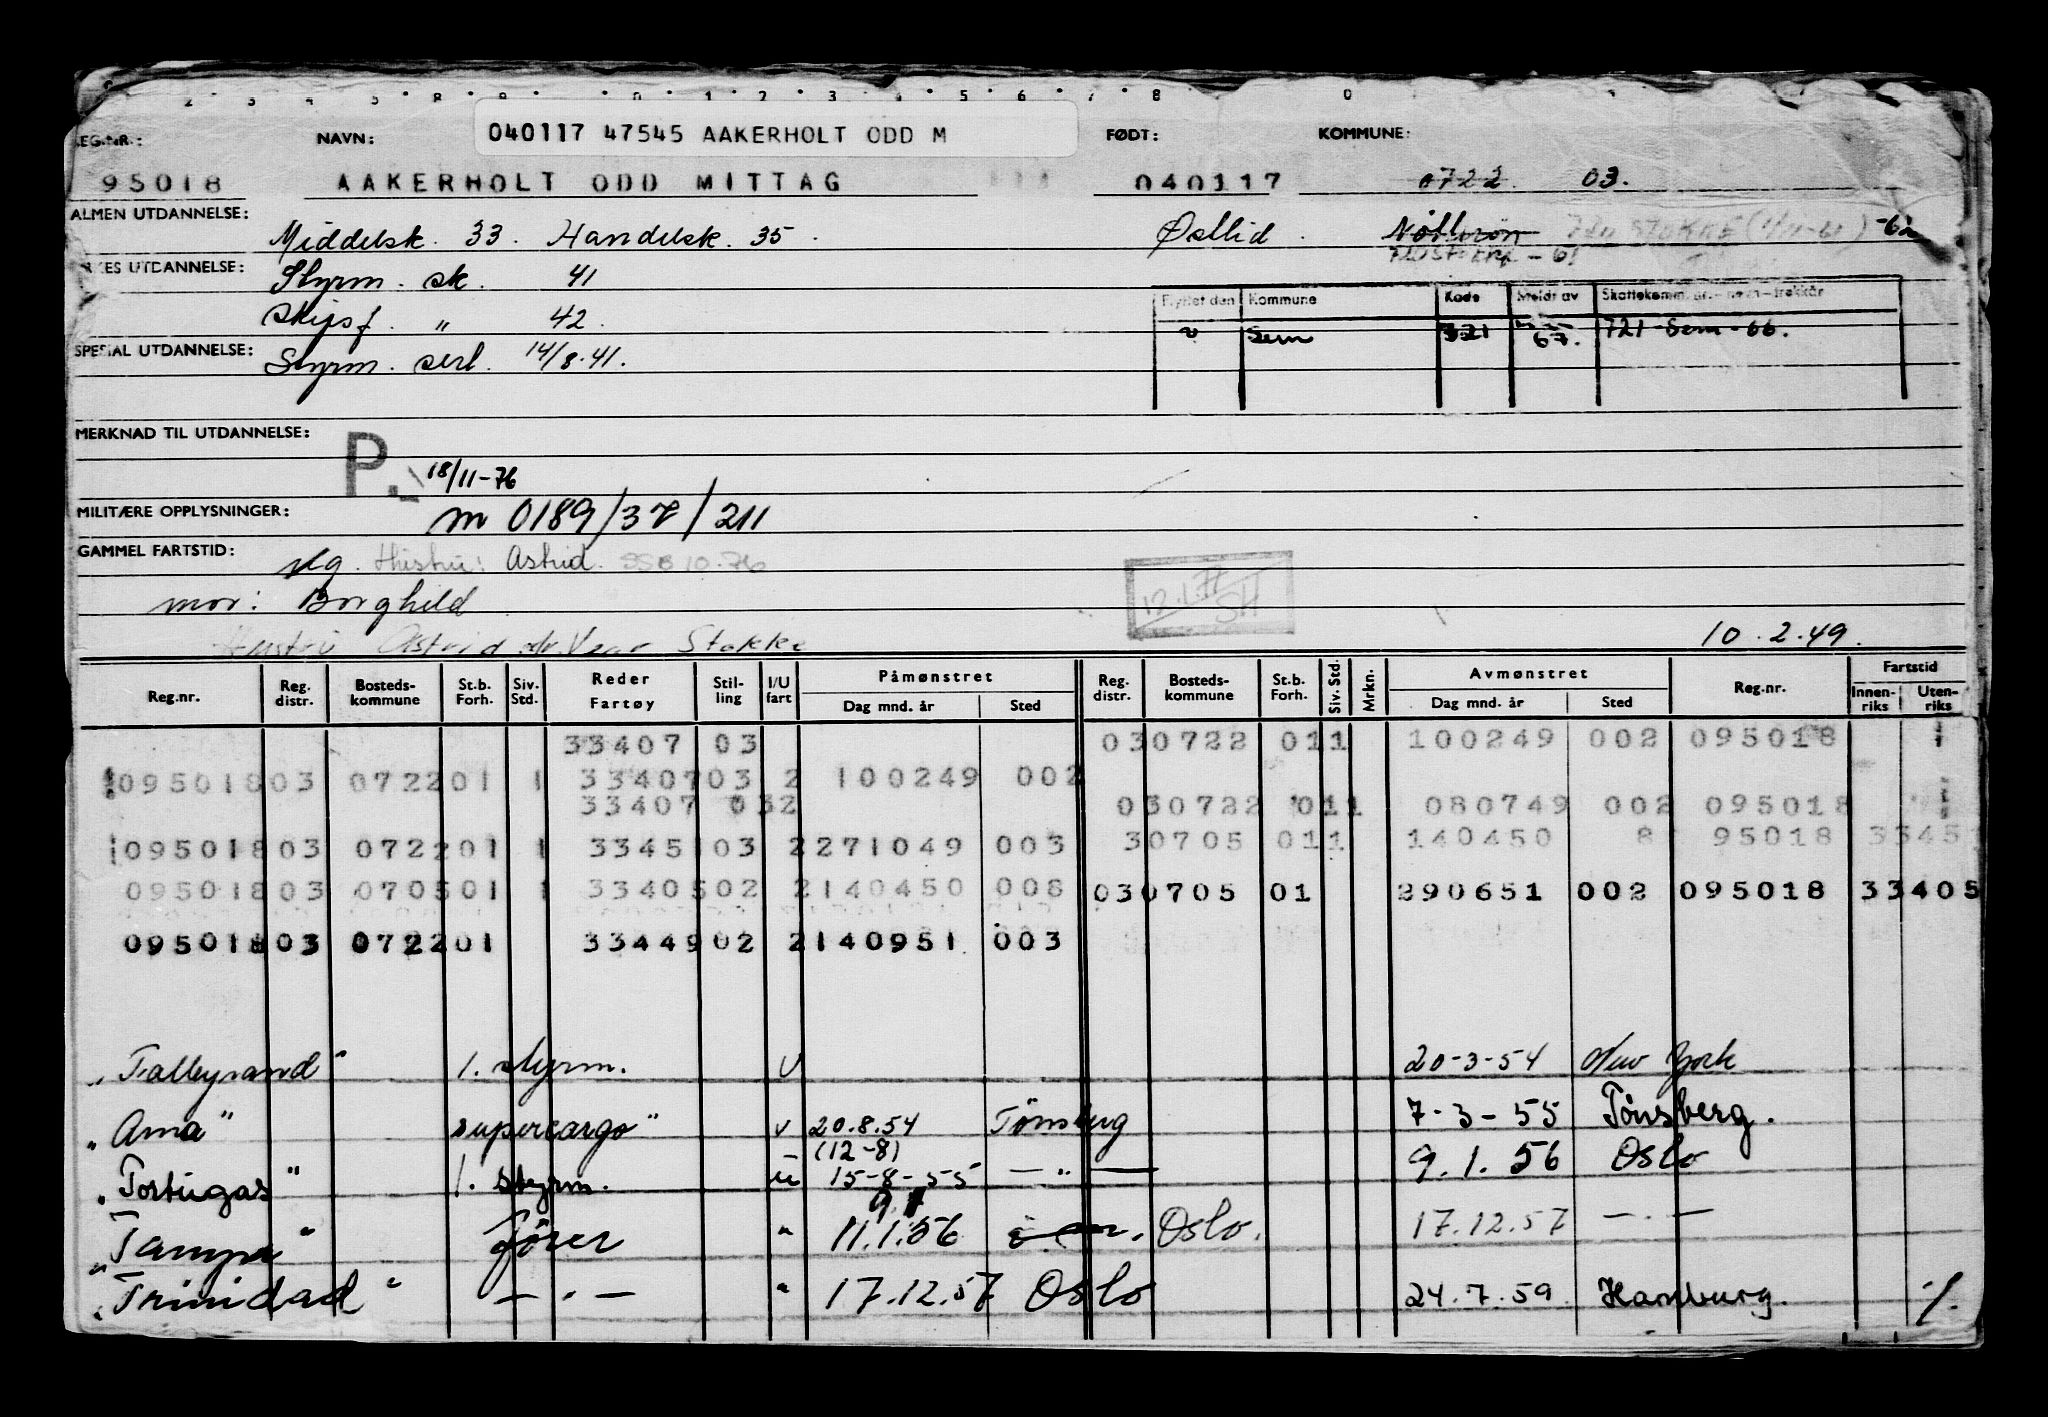 040117 47545 AAKERHOLT ODD M
NAVN: FØDT: KOMMUNE:
95018 AAKERHOLT ODD MITTAG 040117 0722 03.
ALMEN UTDANNELSE: Middelsk. 33. Handelsk. 35. Østlid. Nøtterøy
UTDANNELSE: Styrm. sk. 41
Skipsf. " 42.
Flyttet den Kommune Kode Meldt av
SPESIAL UTDANNELSE: Styrm. sert. 14/8.41.
Sem 67. 721-Sem-66.
MERKNAD TIL UTDANNELSE:
P. 18/11-76
MILITÆRE OPPLYSNINGER: m 0189/37/211
GAMMEL FARTSTID: Hustru: Astrid. SSB 10.76
12.1.77 SH
mor: Borghild
Hustru Astrid Stokke 10.2.49.
Reg.nr. Reg. distr. Bosteds- kommune St.b. Forh. Siv. Std. Reder Fartøy Stil- ling I/U fart Påmønstret Dag mnd. år Sted Reg. distr. Bosteds- kommune St.b. Forh. Siv. Std. Mrkn. Avmønstret Dag mnd. år Sted Reg.nr. Fartstid Innen- riks Uten- riks
33407 03 030722 011 100249 002 095018
09501803 072201 1 3340703 2 100249 002
33407 032 030722 011 080749 002 095018
09501803 072201 1 3345103 2271049 003 30705 011 140450 8 95018 3345
09501803 070501 1 3340502 2140450 008 030705 01 290651 002 095018 33405
09501803 072201 3344902 2140951 003
"Talleyrand" 1. styrm. U 20-3-54 New York
"Ama" supercargo" 20.8.54 Tønsberg 7-3-55 Tønsberg.
(12-8)
"Tortugas" 1. styrm. u 15-8-55 — " — 9.1.56 Oslo
"Tampa" fører " 11.1.56 Oslo. 17.12.57 —.—
"Trinidad" —.— " 17.12.57 Oslo 24.7.59. Hamburg.